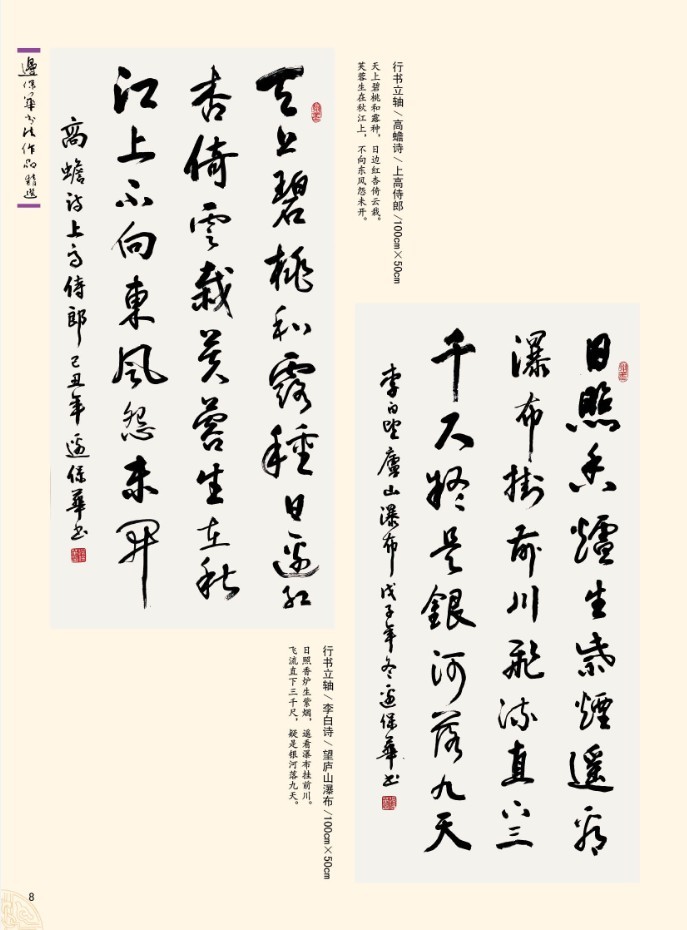 邊保華書法作品精選
天上碧桃和露種日邊紅
杏倚雲栽芙蓉生在秋
江上不向東風怨未開
高蟾詩上高侍郎 己丑年 邊保華书
行书立轴/高蟾诗/上高侍郎/100cm×50cm
天上碧桃和露种，日边红杏倚云栽。
芙蓉生在秋江上，不向东风怨未开。
日照香爐生紫煙遥看
瀑布掛前川飛流直下三
千尺疑是銀河落九天
李白望廬山瀑布 戊子年冬 邊保華书
行书立轴/李白诗/望庐山瀑布/100cm×50cm
日照香炉生紫烟，遥看瀑布挂前川。
飞流直下三千尺，疑是银河落九天。
8